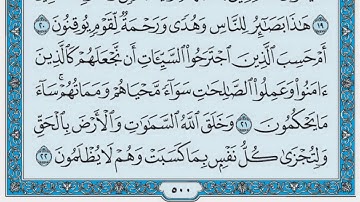 ١٩ هَٰذَا بَصَٰٓئِرُ لِلنَّاسِ وَهُدًى وَرَحْمَةٌ لِّقَوْمٍ يُوقِنُونَ ٢٠
أَمْ حَسِبَ ٱلَّذِينَ ٱجْتَرَحُوا۟ ٱلسَّيِّـَٔاتِ أَن نَّجْعَلَهُمْ كَٱلَّذِينَ
ءَامَنُوا۟ وَعَمِلُوا۟ ٱلصَّٰلِحَٰتِ سَوَآءً مَّحْيَاهُمْ وَمَمَاتُهُمْ ۚ سَآءَ
مَا يَحْكُمُونَ ٢١ وَخَلَقَ ٱللَّهُ ٱلسَّمَٰوَٰتِ وَٱلْأَرْضَ بِٱلْحَقِّ
وَلِتُجْزَىٰ كُلُّ نَفْسٍۭ بِمَا كَسَبَتْ وَهُمْ لَا يُظْلَمُونَ ٢٢
٥٠٠